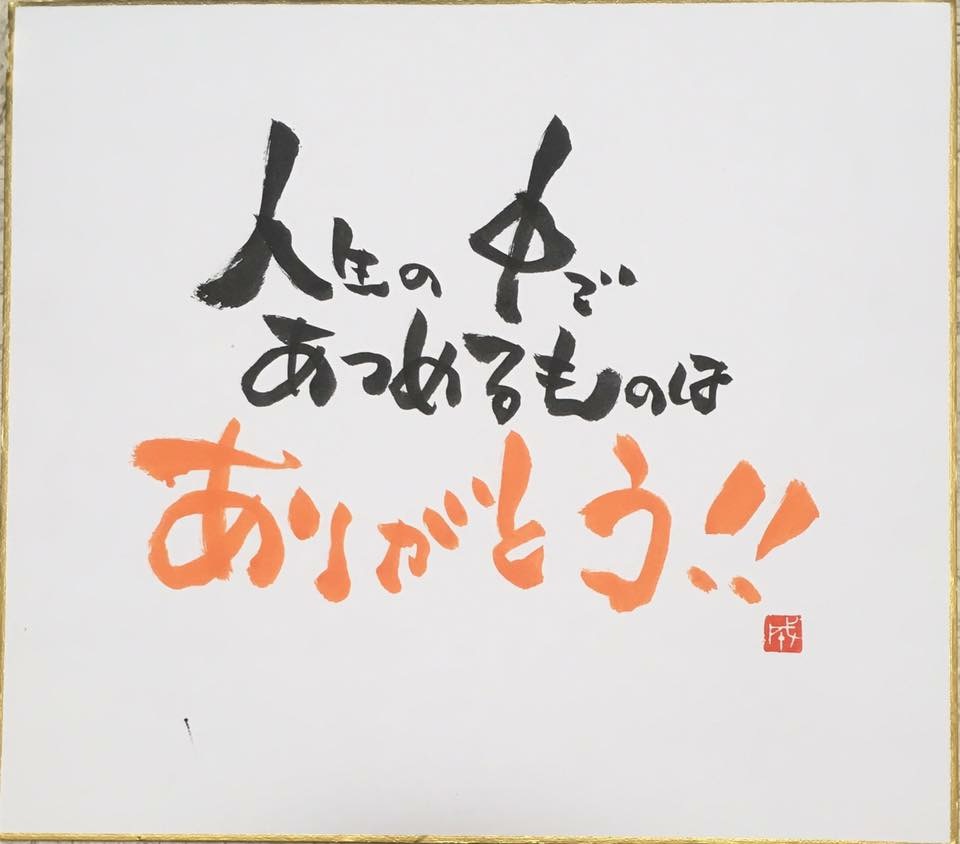 人生の中で
あつめるものは
ありがとう!!
成